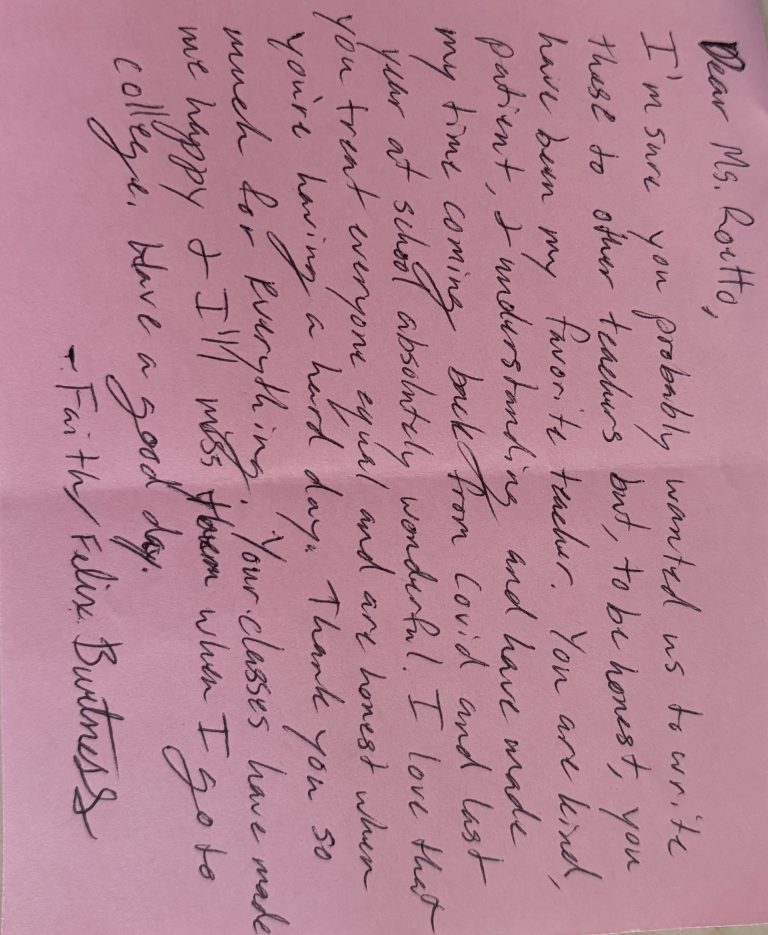 Dear Ms. Roitto,
I'm sure you probably wanted us to write
these to other teachers but, to be honest, you
have been my favorite teacher. You are kind,
patient, & understanding and have made
my time coming back from Covid and last
year at school absolutely wonderful. I love that
you treat everyone equal and are honest when
you're having a hard day. Thank you so
much for everything. Your classes have made
me happy & I'll miss them when I go to
college. Have a good day.
- Faith/Felix Burtness